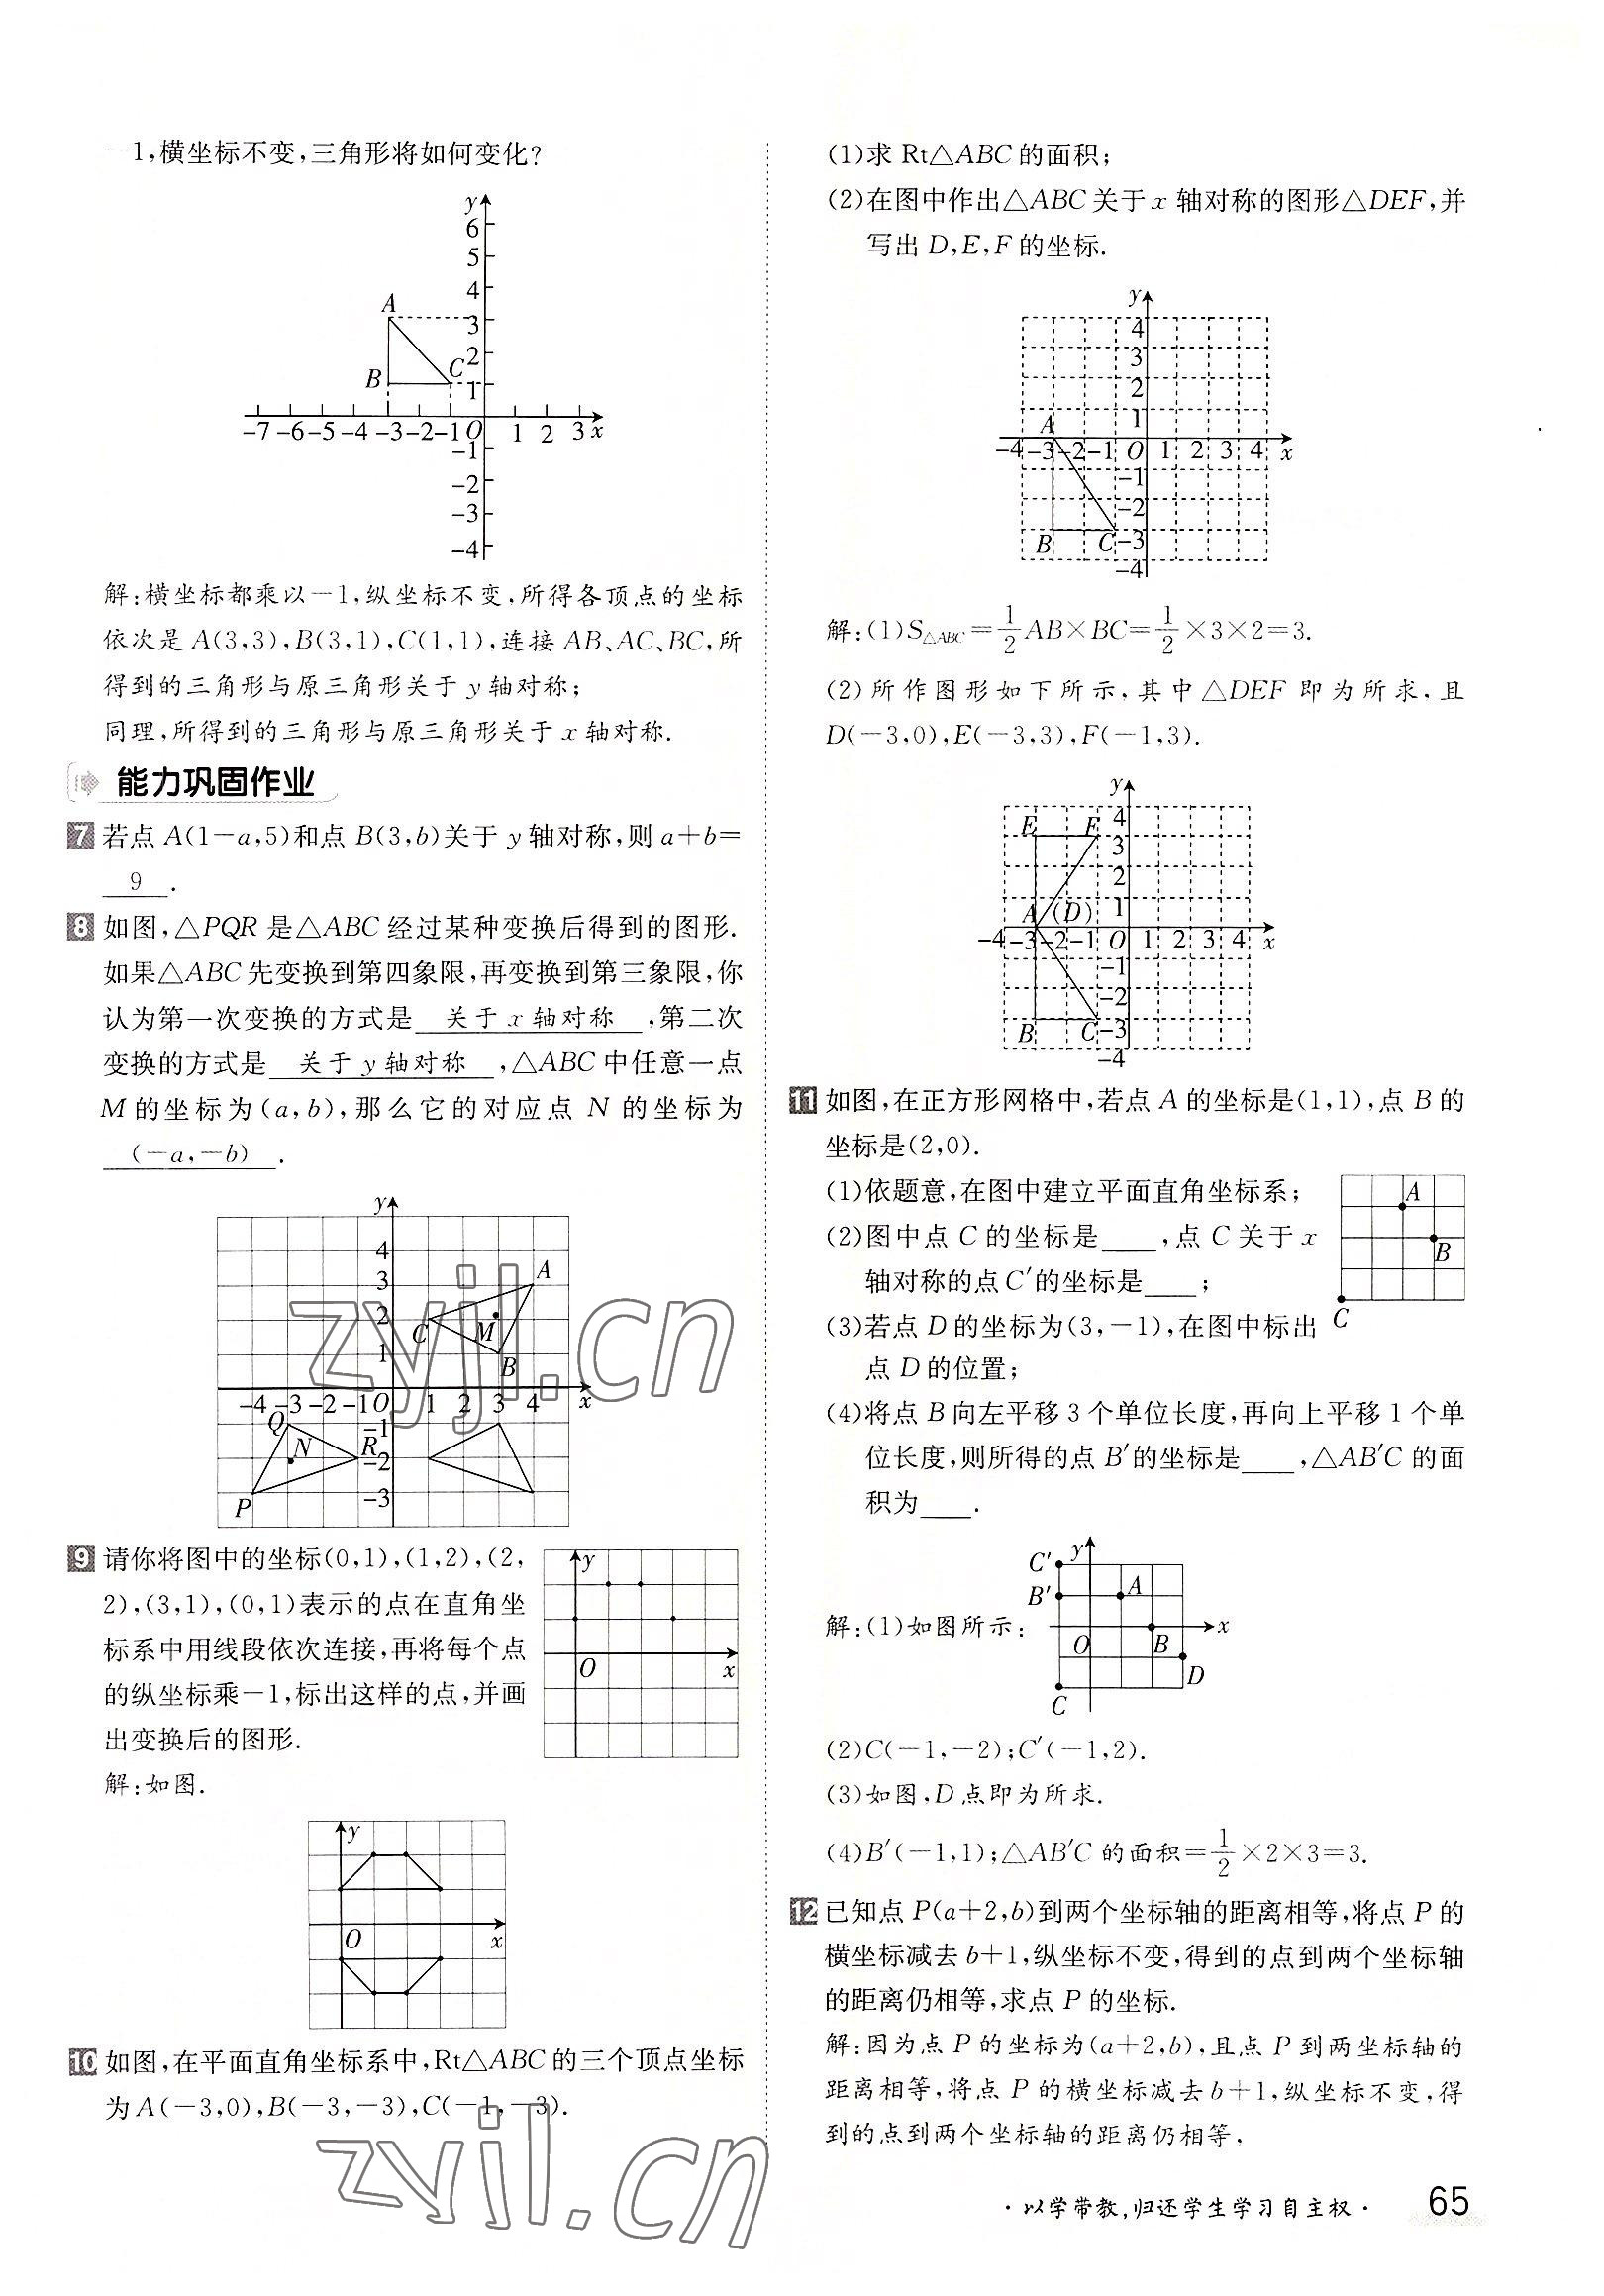 -1,横坐标不变,三角形将如何变化?
y
6
5
4
A
3
C 2
B
1
-7 -6 -5 -4 -3 -2 -1 O 1 2 3 x
-1
-2
-3
-4
解:横坐标都乘以-1,纵坐标不变,所得各顶点的坐标
依次是 A(3,3),B(3,1),C(1,1),连接 AB、AC、BC,所
得到的三角形与原三角形关于 y 轴对称;
同理,所得到的三角形与原三角形关于 x 轴对称.
能力巩固作业
7 若点 A(1-a,5)和点 B(3,b)关于 y 轴对称,则 a+b=
9 .
8 如图,△PQR 是△ABC 经过某种变换后得到的图形.
如果△ABC 先变换到第四象限,再变换到第三象限,你
认为第一次变换的方式是 关于 x 轴对称 ,第二次
变换的方式是 关于 y 轴对称 ,△ABC 中任意一点
M 的坐标为(a,b),那么它的对应点 N 的坐标为
(-a,-b) .
y
4
3 A
2
C M
1 B
-4 -3 -2 -1 O 1 2 3 4 x
Q -1
N R
-2
P -3
zyjl.cn
9 请你将图中的坐标(0,1),(1,2),(2,
2),(3,1),(0,1)表示的点在直角坐
标系中用线段依次连接,再将每个点
的纵坐标乘-1,标出这样的点,并画
出变换后的图形.
y
O x
解:如图.
y
O x
10 如图,在平面直角坐标系中,Rt△ABC 的三个顶点坐标
为 A(-3,0),B(-3,-3),C(-1,-3).
zyjl.cn
(1)求 Rt△ABC 的面积;
(2)在图中作出△ABC 关于 x 轴对称的图形△DEF,并
写出 D,E,F 的坐标.
y
4
3
2
A 1
-4 -3 -2 -1 O 1 2 3 4 x
-1
-2
B C -3
-4
解:(1)S△ABC=1/2 AB×BC=1/2×3×2=3.
(2)所作图形如下所示,其中△DEF 即为所求,且
D(-3,0),E(-3,3),F(-1,3).
y
E F 4
3
2
A (D) 1
-4 -3 -2 -1 O 1 2 3 4 x
-1
-2
B C -3
-4
11 如图,在正方形网格中,若点 A 的坐标是(1,1),点 B 的
坐标是(2,0).
(1)依题意,在图中建立平面直角坐标系;
(2)图中点 C 的坐标是____,点 C 关于 x
轴对称的点 C′的坐标是____;
(3)若点 D 的坐标为(3,-1),在图中标出
点 D 的位置;
A
B
C
(4)将点 B 向左平移 3 个单位长度,再向上平移 1 个单
位长度,则所得的点 B′的坐标是____,△AB′C 的面
积为____.
解:(1)如图所示:
C′ y
B′ A
O B x
D
C
(2)C(-1,-2);C′(-1,2).
(3)如图,D 点即为所求.
(4)B′(-1,1);△AB′C 的面积=1/2×2×3=3.
12 已知点 P(a+2,b)到两个坐标轴的距离相等,将点 P 的
横坐标减去 b+1,纵坐标不变,得到的点到两个坐标轴
的距离仍相等,求点 P 的坐标.
解:因为点 P 的坐标为(a+2,b),且点 P 到两坐标轴的
距离相等,将点 P 的横坐标减去 b+1,纵坐标不变,得
到的点到两个坐标轴的距离仍相等,
·以学带教,归还学生学习自主权· 65